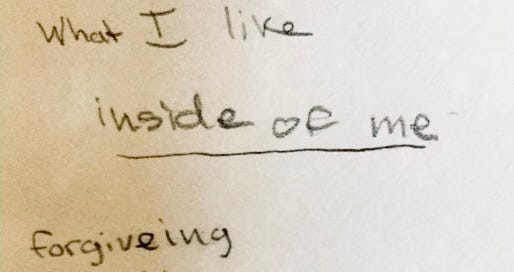 What I like
inside of me
forgiveing